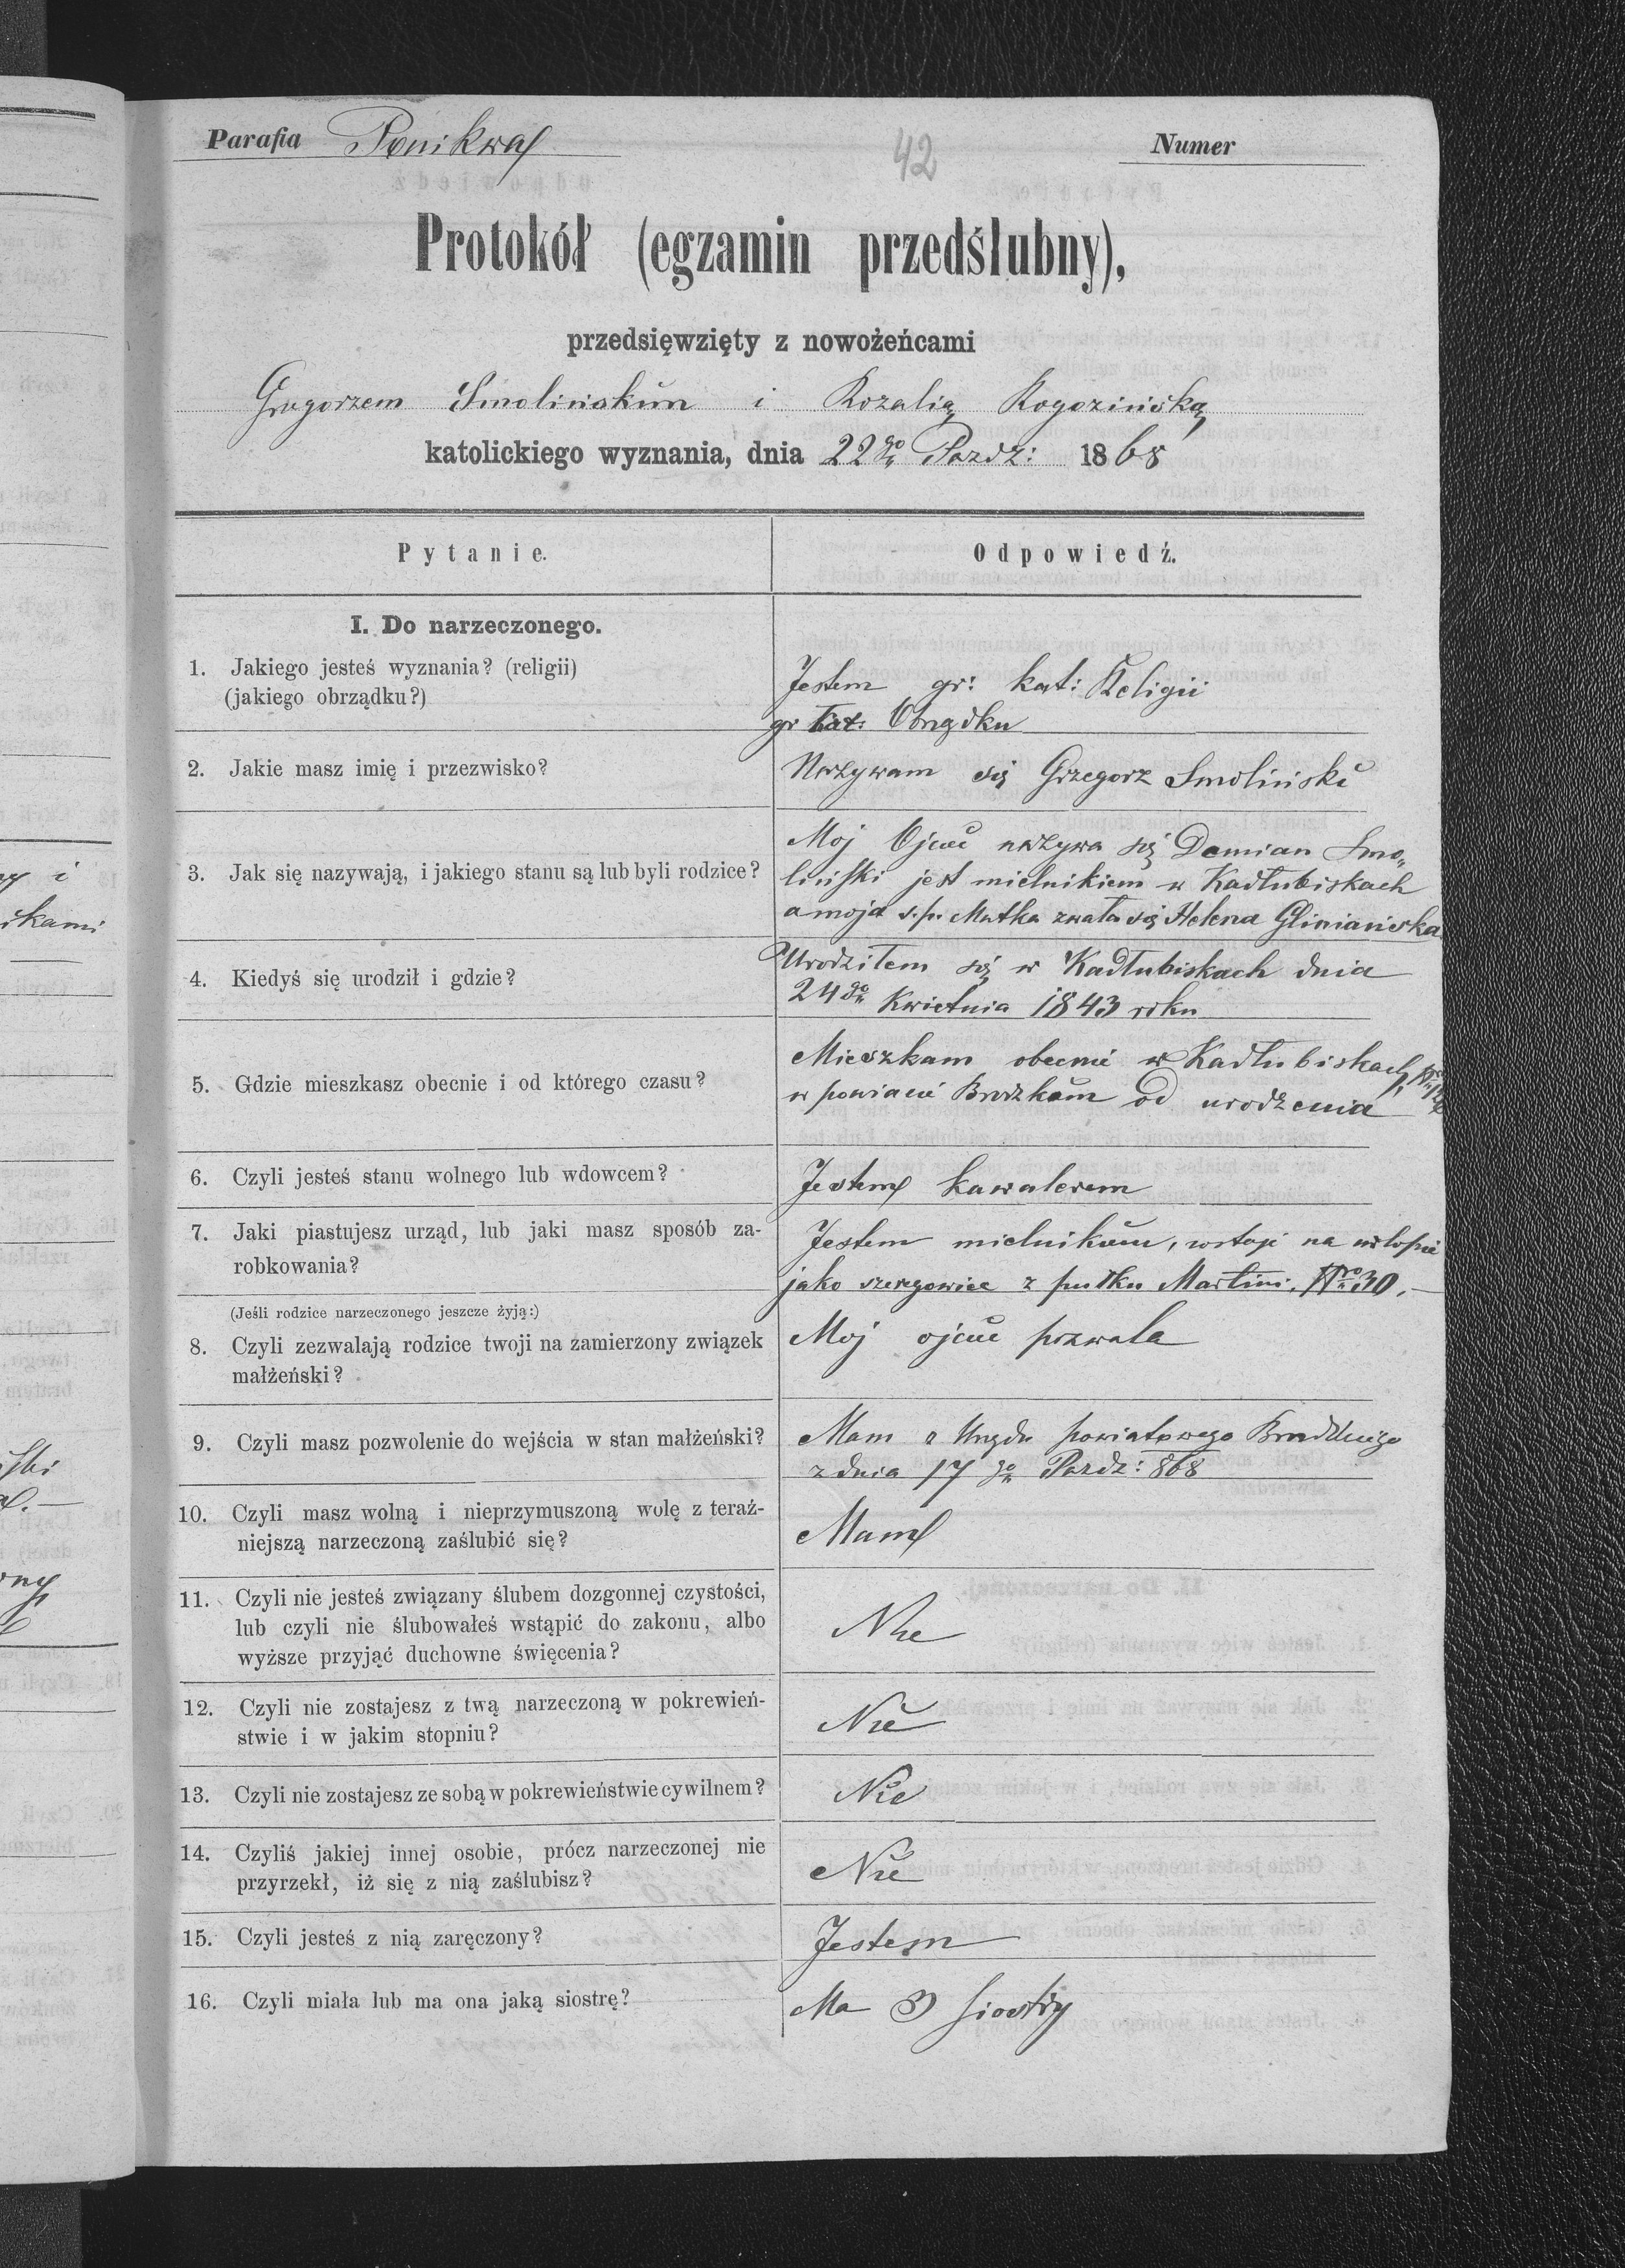 Parafia Ponikwa
42
Numer
Protokół (egzamin przedślubny),
przedsięwzięty z nowożeńcami
Grzegorzem Smolińskim i Rozalią Rogozińską
katolickiego wyznania, dnia 22go Pazdz: 1868
Pytanie.
Odpowiedź.
I. Do narzeczonego.
1. Jakiego jesteś wyznania? (religii)
(jakiego obrządku?)
Jestem gr: kat: Religii
gr kat: Obrządku
2. Jakie masz imię i przezwisko?
Nazywam się Grzegorz Smoliński
3. Jak się nazywają, i jakiego stanu są lub byli rodzice?
Moj Ojciec nazywa się Damian Smo„
liński jest mielnikiem w Kadłubiskach
a moja s.p. Matka zwała się Helena Gliniańska
4. Kiedyś się urodził i gdzie?
Urodziłem się w Kadłubiskach dnia
24go Kwietnia 1843 roku
5. Gdzie mieszkasz obecnie i od którego czasu?
Mieszkam obecnie w Kadłubiskach
w powiacie Brodzkim od urodzenia
6. Czyli jesteś stanu wolnego lub wdowcem?
Jestem kawalerem
7. Jaki piastujesz urząd, lub jaki masz sposób za-
robkowania?
Jestem mielnikiem, zostaje na urlopie
jako szeregowiec z pułku Martini. Nro 30.—
(Jeśli rodzice narzeczonego jeszcze żyją:)
8. Czyli zezwalają rodzice twoji na zamierzony związek
małżeński?
Moj ojciec pozwala
9. Czyli masz pozwolenie do wejścia w stan małżeński?
Mam z Urzędu powiatowego Brodzkiego
z dnia 17go Pazdz: 868
10. Czyli masz wolną i nieprzymuszoną wolę z teraź-
niejszą narzeczoną zaślubić się?
Mam
11. Czyli nie jesteś związany ślubem dozgonnej czystości,
lub czyli nie ślubowałeś wstąpić do zakonu, albo
wyższe przyjąć duchowne święcenia?
Nie
12. Czyli nie zostajesz z twą narzeczoną w pokrewień-
stwie i w jakim stopniu?
Nie
13. Czyli nie zostajesz ze sobą w pokrewieństwie cywilnem?
Nie
14. Czyliś jakiej innej osobie, prócz narzeczonej nie
przyrzekł, iż się z nią zaślubisz?
Nie
15. Czyli jesteś z nią zaręczony?
Jestem
16. Czyli miała lub ma ona jaką siostrę?
Ma 3 siostry